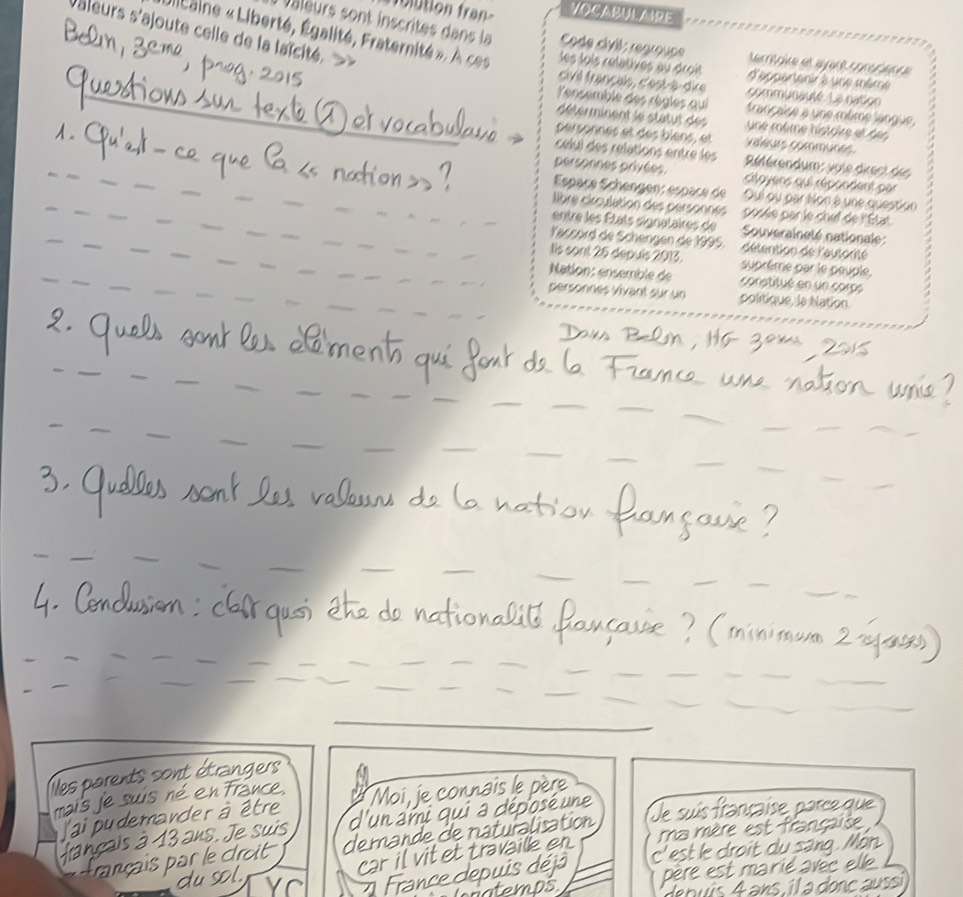 valeurs sont inscrites dans la
« Liberté, Égalité, Fraternité ». À ces
valeurs s'ajoute celle de la laïcité. >>
Belin, 3eme, prog. 2015
Questions sur texte ① et vocabulaire →
1. Qu'est-ce que la << nation >> ?
VOCABULAIRE
Code civil : regroupe
les lois relatives au droit
civil français, c'est-à-dire
l'ensemble des règles qui
déterminent le statut des
personnes et des biens, et
celui des relations entre les
personnes privées.
Espace Schengen : espace de
libre circulation des personnes
entre les États signataires de
l'accord de Schengen de 1995.
Ils sont 26 depuis 2013.
Nation : ensemble de
personnes vivant sur un
territoire et ayant conscience
d'appartenir à une même
communauté. La nation
française a une même langue,
une même histoire et des
valeurs communes.
Référendum : vote direct des
citoyens qui répondent par
Oui ou par Non à une question
posée par le chef de l'État.
Souveraineté nationale :
détention de l'autorité
suprême par le peuple,
constitué en un corps
politique, la Nation.
Dans Belin, HG 3eme, 2015
2. Quels sont les éléments qui font de la France une nation unie ?
3. Quelles sont les valeurs de la nation française ?
4. Conclusion : c'est quoi être de nationalité française ? (minimum 2
Mes parents sont étrangers
mais je suis né en France.
J'ai pu demander à être
français à 13 ans. Je suis
français par le droit
du sol.
Moi, je connais le père
d'un ami qui a déposé une
demande de naturalisation
car il vit et travaille en
France depuis déjà
longtemps.
Je suis française parce que
ma mère est française,
c'est le droit du sang. Mon
père est marié avec elle
depuis 4 ans, il a donc aussi